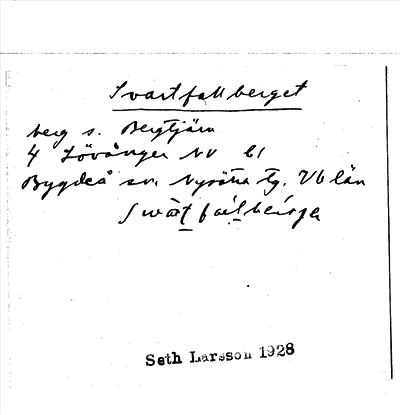 Svartfallberget
berg s. Bergtjärn
4 Lövånger NV b1
Bygdeå sn. Nysätra tg. Vb län
Seth Larsson 1928